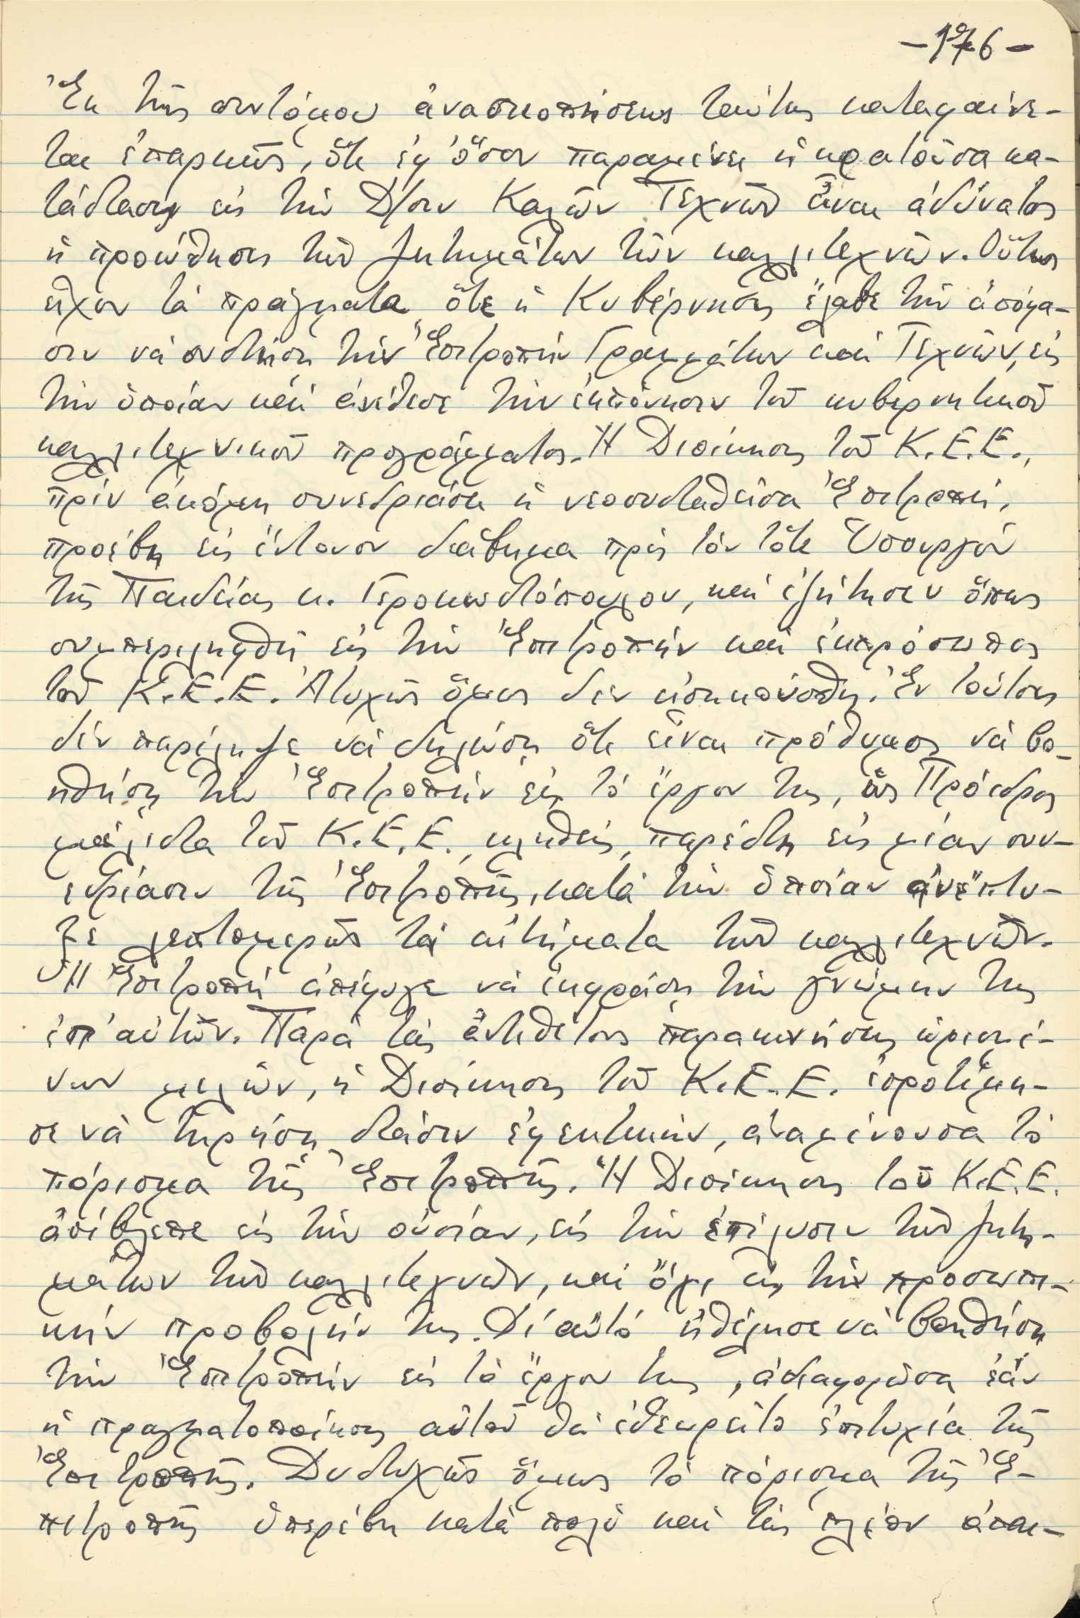 -176-
Ἐκ τῆς συντόμου ἀνασκοπήσεως ταύτης καταφαίνε-
ται ἐπαρκῶς, ὅτι ἐφ' ὅσον παραμένει ἡ κρατοῦσα κα-
τάστασις εἰς τὴν Δ/σιν Καλῶν Τεχνῶν εἶναι ἀδύνατος
ἡ προώθησις τῶν ζητημάτων τῶν καλλιτεχνῶν. Οὕτως
εἶχον τὰ πράγματα ὅτε ἡ Κυβέρνησις ἔλαβε τὴν ἀπόφα-
σιν νὰ συστήσῃ τὴν Ἐπιτροπὴν Γραμμάτων καὶ Τεχνῶν, εἰς
τὴν ὁποίαν καὶ ἀνέθεσε τὴν ἐκπόνησιν τοῦ κυβερνητικοῦ
καλλιτεχνικοῦ προγράμματος. Ἡ Διοίκησις τοῦ Κ.Ε.Ε.,
πρὶν ἀκόμη συνεδριάσῃ ἡ νεοσυσταθεῖσα Ἐπιτροπή,
προέβη εἰς ἔντονον διάβημα πρὸς τὸν τότε Ὑπουργὸν
τῆς Παιδείας κ. Γεροκωστόπουλον, καὶ ἐζήτησεν ὅπως
συμπεριληφθῇ εἰς τὴν Ἐπιτροπὴν καὶ ἐκπρόσωπος
τοῦ Κ.Ε.Ε. Ἀτυχῶς ὅμως δὲν εἰσηκούσθη. Ἐν τούτοις
δὲν παρέλειψε νὰ δηλώσῃ ὅτι εἶναι πρόθυμος νὰ βο-
ηθήσῃ τὴν Ἐπιτροπὴν εἰς τὸ ἔργον της, ὡς Πρόεδρος
μάλιστα τοῦ Κ.Ε.Ε., κληθείς, παρέστη εἰς μίαν συν-
εδρίασιν τῆς Ἐπιτροπῆς, κατὰ τὴν ὁποίαν ἀνέπτυ-
ξε λεπτομερῶς τὰ αἰτήματα τῶν καλλιτεχνῶν.
Ἡ Ἐπιτροπὴ ἀπέφυγε νὰ ἐκφράσῃ τὴν γνώμην της
ἐπ' αὐτῶν. Παρὰ τὰς ἀντιθέτους παρακινήσεις ὡρισμέ-
νων μελῶν, ἡ Διοίκησις τοῦ Κ.Ε.Ε. ἐπροτίμη-
σε νὰ τηρήσῃ στάσιν ἐφεκτικήν, ἀναμένουσα τὸ
πόρισμα τῆς Ἐπιτροπῆς. Ἡ Διοίκησις τοῦ Κ.Ε.Ε.
ἀπέβλεπε εἰς τὴν οὐσίαν, εἰς τὴν ἐπίλυσιν τῶν ζητη-
μάτων τῶν καλλιτεχνῶν, καὶ ὄχι εἰς τὴν προσωπι-
κὴν προβολήν της. Δι' αὐτὸ ἠθέλησε νὰ βοηθήσῃ
τὴν Ἐπιτροπὴν εἰς τὸ ἔργον της, ἀδιαφοροῦσα ἐὰν
ἡ πραγματοποίησις αὐτοῦ θὰ ἐθεωρεῖτο ἐπιτυχία τῆς
Ἐπιτροπῆς. Δυστυχῶς ὅμως τὸ πόρισμα τῆς Ἐ-
πιτροπῆς ὑπερέβη κατὰ πολὺ καὶ τὰς πλέον ἀπαι-